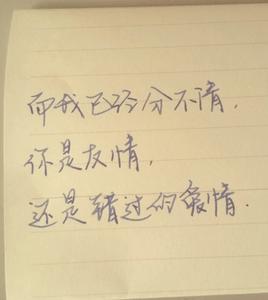 而我已经分不清，
你是友情，
还是错过的爱情．